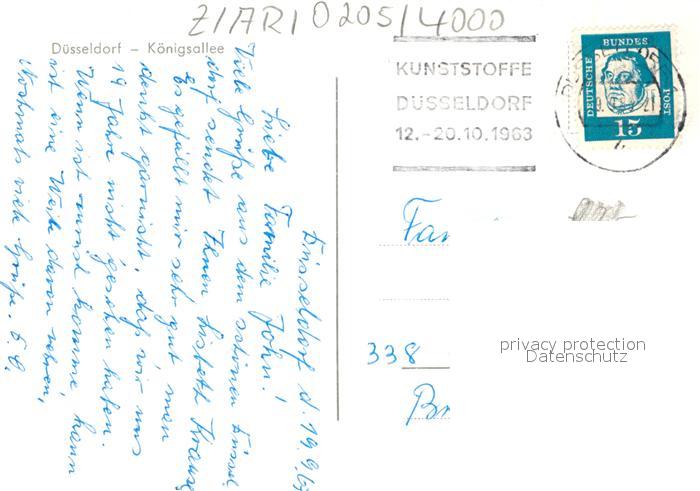 Z/ARI0205/4000
Düsseldorf – Königsallee
KUNSTSTOFFE
DÜSSELDORF
12.-20.10.1963
DEUTSCHE
BUNDES
POST
15
Düsseldorf d. 19.9.63
Liebe Familie John!
Viele Grüße aus dem schönen Düssel
dorf sendet Ihnen Lisbeth Krause
Es gefällt mir sehr gut man
denkt garnicht, daß wir uns
19 Jahre nicht gesehen haben.
Wenn ist und komme, kann
ist eine Weile davon
Nochmals viele Grüße. L. C.
Fam
338
Br
privacy protection
Datenschutz